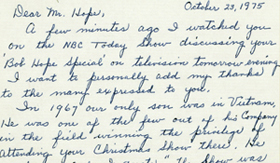 October 23, 1975
Dear Mr. Hope,
A few minutes ago I watched you
on the NBC Today Show discussing your
Bob Hope Special on television tomorrow evening.
I want to personally add my thanks
to the many expressed to you.
In 1967 our only son was in Vietnam.
He was one of the few out of his Company
in the field winning the privilege of
attending your Christmas Show there. He
the Show was